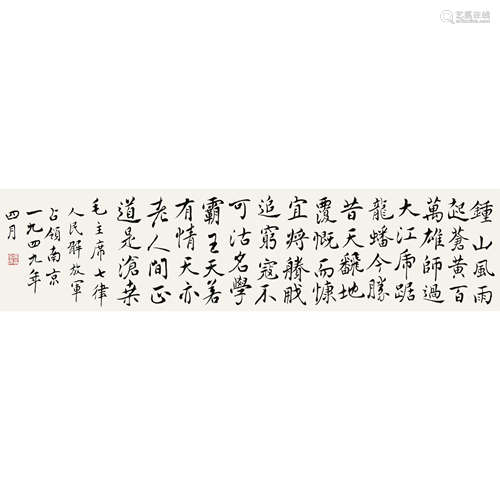 鍾山風雨
起蒼黄百
萬雄師過
大江虎踞
龍蟠今勝
昔天翻地
覆慨而慷
宜将賸
追窮寇不
可沽名學
霸王天若
有情天亦
老人間正
道是滄桒
毛主席七律
人民解放軍
占領南京
一九四九年
四月
艺狐在线